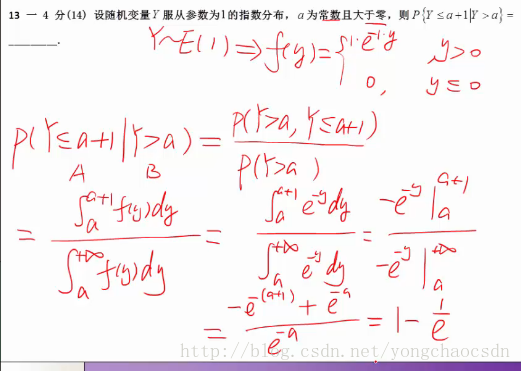 13 一 4 分(14) 设随机变量 Y 服从参数为1的指数分布，a 为常数且大于零，则 P{Y ≤ a+1|Y > a} =
________.
Y~E(1) ⟹ f(y) = { 1·e^{-1·y}  y>0
0,  y≤0
P(Y≤a+1|Y>a) = P(Y>a, Y≤a+1) / P(Y>a)
A  B
= ∫_a^{a+1} f(y)dy / ∫_a^{+∞} f(y)dy = ∫_a^{a+1} e^{-y}dy / ∫_a^{+∞} e^{-y}dy = -e^{-y}|_a^{a+1} / -e^{-y}|_a^{+∞}
= (-e^{-(a+1)} + e^{-a}) / e^{-a} = 1 - 1/e
http://blog.csdn.net/yongchaocsdn